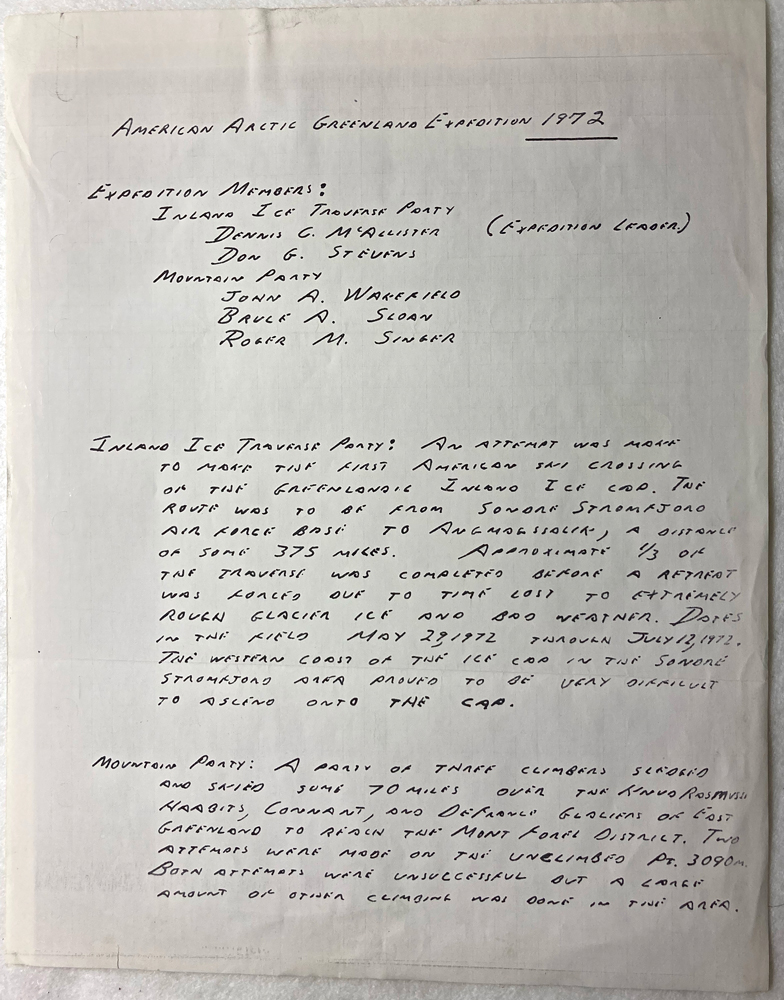 AMERICAN ARCTIC GREENLAND EXPEDITION 1972
EXPEDITION MEMBERS:
INLAND ICE TRAVERSE PARTY
DENNIS C. McALLISTER (EXPEDITION LEADER.)
DON G. STEVENS
MOUNTAIN PARTY
JOHN A. WAKEFIELD
BRUCE A. SLOAN
ROGER M. SINGER
INLAND ICE TRAVERSE PARTY: AN ATTEMPT WAS MADE
TO MAKE THE FIRST AMERICAN SKI CROSSING
OF THE GREENLANDIC INLAND ICE CAP. THE
ROUTE WAS TO BE FROM SONDRE STROMFJORD
AIR FORCE BASE TO ANGMAGSSALIK, A DISTANCE
OF SOME 375 MILES. APPROXIMATE 1/3 OF
THE TRAVERSE WAS COMPLETED BEFORE A RETREAT
WAS FORCED DUE TO TIME LOST TO EXTREMELY
ROUGH GLACIER ICE AND BAD WEATHER. DATES
IN THE FIELD MAY 29, 1972 THROUGH JULY 12, 1972.
THE WESTERN COAST OF THE ICE CAP IN THE SONDRE
STROMFJORD AREA PROVED TO BE VERY DIFFICULT
TO ASCEND ONTO THE CAP.
MOUNTAIN PARTY: A PARTY OF THREE CLIMBERS SLEDGED
AND SKIED SOME 70 MILES OVER THE KNUD RASMUSSEN
HAABITS, CONNIAT, AND DEFRANCE GLACIERS OF EAST
GREENLAND TO REACH THE MONT FOREL DISTRICT. TWO
ATTEMPTS WERE MADE ON THE UNCLIMBED PT. 3090m.
BOTH ATTEMPTS WERE UNSUCCESSFUL BUT A LARGE
AMOUNT OF OTHER CLIMBING WAS DONE IN THE AREA.